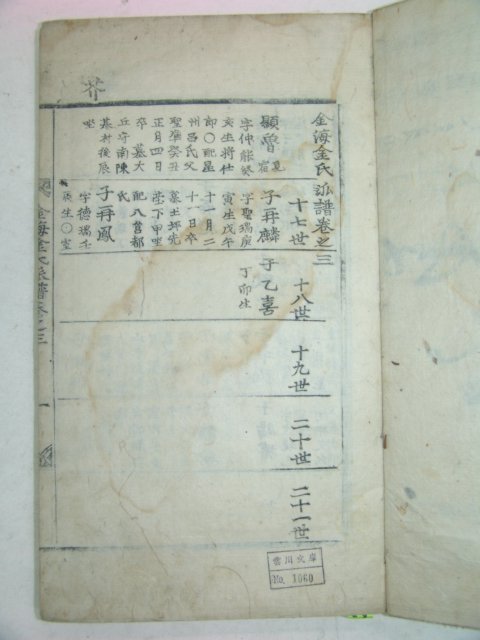 金海金氏派譜卷之三
十七世
十八世
十九世
二十世
二十一世
顯魯
字仲能癸
亥生將仕
郎○配星
州呂氏父
聖龐癸丑
正月四日
卒 墓大
丘守南陳
基村後辰
坐
子再麟
字聖瑞庚
寅生戊午
十一月二
十一日卒
墓土坪先
塋下甲坐
配八莒都
氏
子再鳳
字德瑞壬
辰生○室
子乙喜
丁卯生
芥
金海金氏派譜卷之三
一
雲川文庫
No. 1060